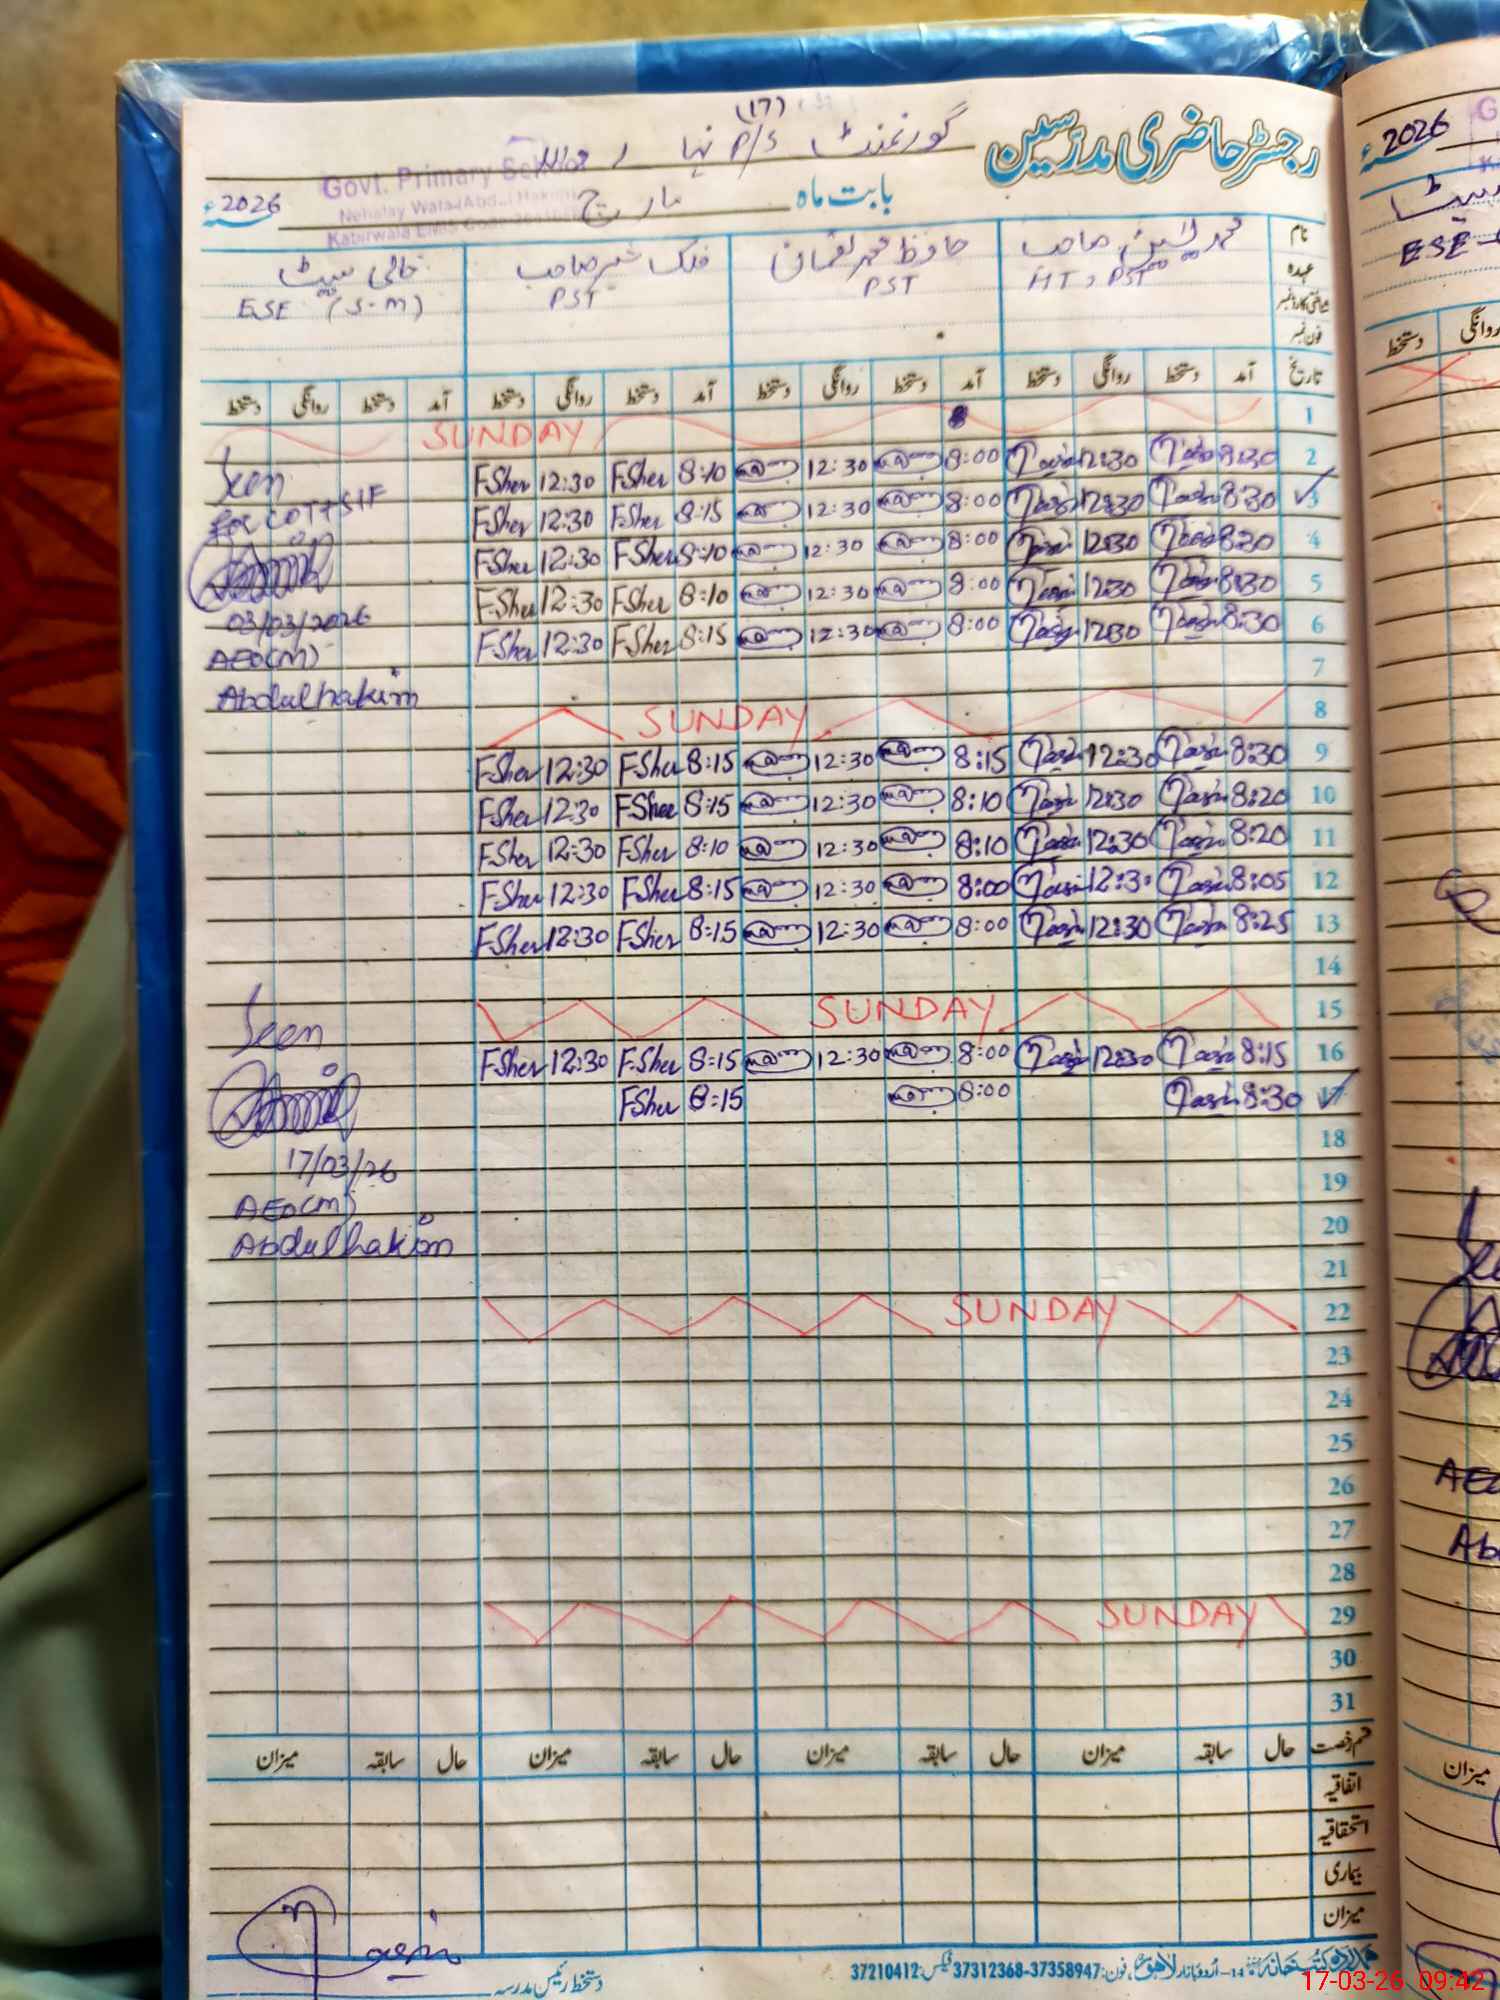 (17)
رجسٹر حاضری مدرسین گورنمنٹ P/S
Govt. Primary School
بابت ماہ مارچ 2026ء
Kabirwala
نام محمد یٰسین صاحب حافظ محمد لقمان فلک شیر صاحب خالی سیٹ
عہدہ HT, PST PST PST ESE (S-M)
شناختی کارڈ نمبر
فون نمبر
تاریخ آمد دستخط روانگی دستخط آمد دستخط روانگی دستخط آمد دستخط روانگی دستخط آمد دستخط روانگی دستخط
1 SUNDAY
2 8:30 Yasin 12:30 Yasin 8:00 12:30 8:10 F.Sher 12:30 F.Sher
3 8:30 Yasin 12:30 Yasin 8:00 12:30 8:15 F.Sher 12:30 F.Sher
4 8:20 Yasin 12:30 Yasin 8:00 12:30 8:10 F.Sher 12:30 F.Sher
5 8:30 Yasin 12:30 Yasin 8:00 12:30 8:10 F.Sher 12:30 F.Sher
6 8:30 Yasin 12:30 Yasin 8:00 12:30 8:15 F.Sher 12:30 F.Sher
7
8 SUNDAY
9 8:30 Yasin 12:30 Yasin 8:15 12:30 8:15 F.Sher 12:30 F.Sher
10 8:20 Yasin 12:30 Yasin 8:10 12:30 8:15 F.Sher 12:30 F.Sher
11 8:20 Yasin 12:30 Yasin 8:10 12:30 8:10 F.Sher 12:30 F.Sher
12 8:05 Yasin 12:30 Yasin 8:00 12:30 8:15 F.Sher 12:30 F.Sher
13 8:25 Yasin 12:30 Yasin 8:00 12:30 8:15 F.Sher 12:30 F.Sher
14
15 SUNDAY
16 8:15 Yasin 12:30 Yasin 8:00 12:30 8:15 F.Sher 12:30 F.Sher
17 8:30 Yasin 8:00 8:15 F.Sher
18
19
20
21
22 SUNDAY
23
24
25
26
27
28
29 SUNDAY
30
31
Seen
for COT+SIF
03/03/2026
AEO(M)
Abdulhakim
Seen
17/03/26
AEO(M)
Abdulhakim
قسم رخصت حال سابقہ میزان حال سابقہ میزان حال سابقہ میزان حال سابقہ میزان
اتفاقیہ
استحقاقیہ
بیماری
میزان
Yasin
دستخط رئیس مدرسہ
اردو بازار لاہور، فون: 37358947-37312368 فیکس: 37210412
2026
ESE
دستخط روانگی
میزان
17-03-26 09:42